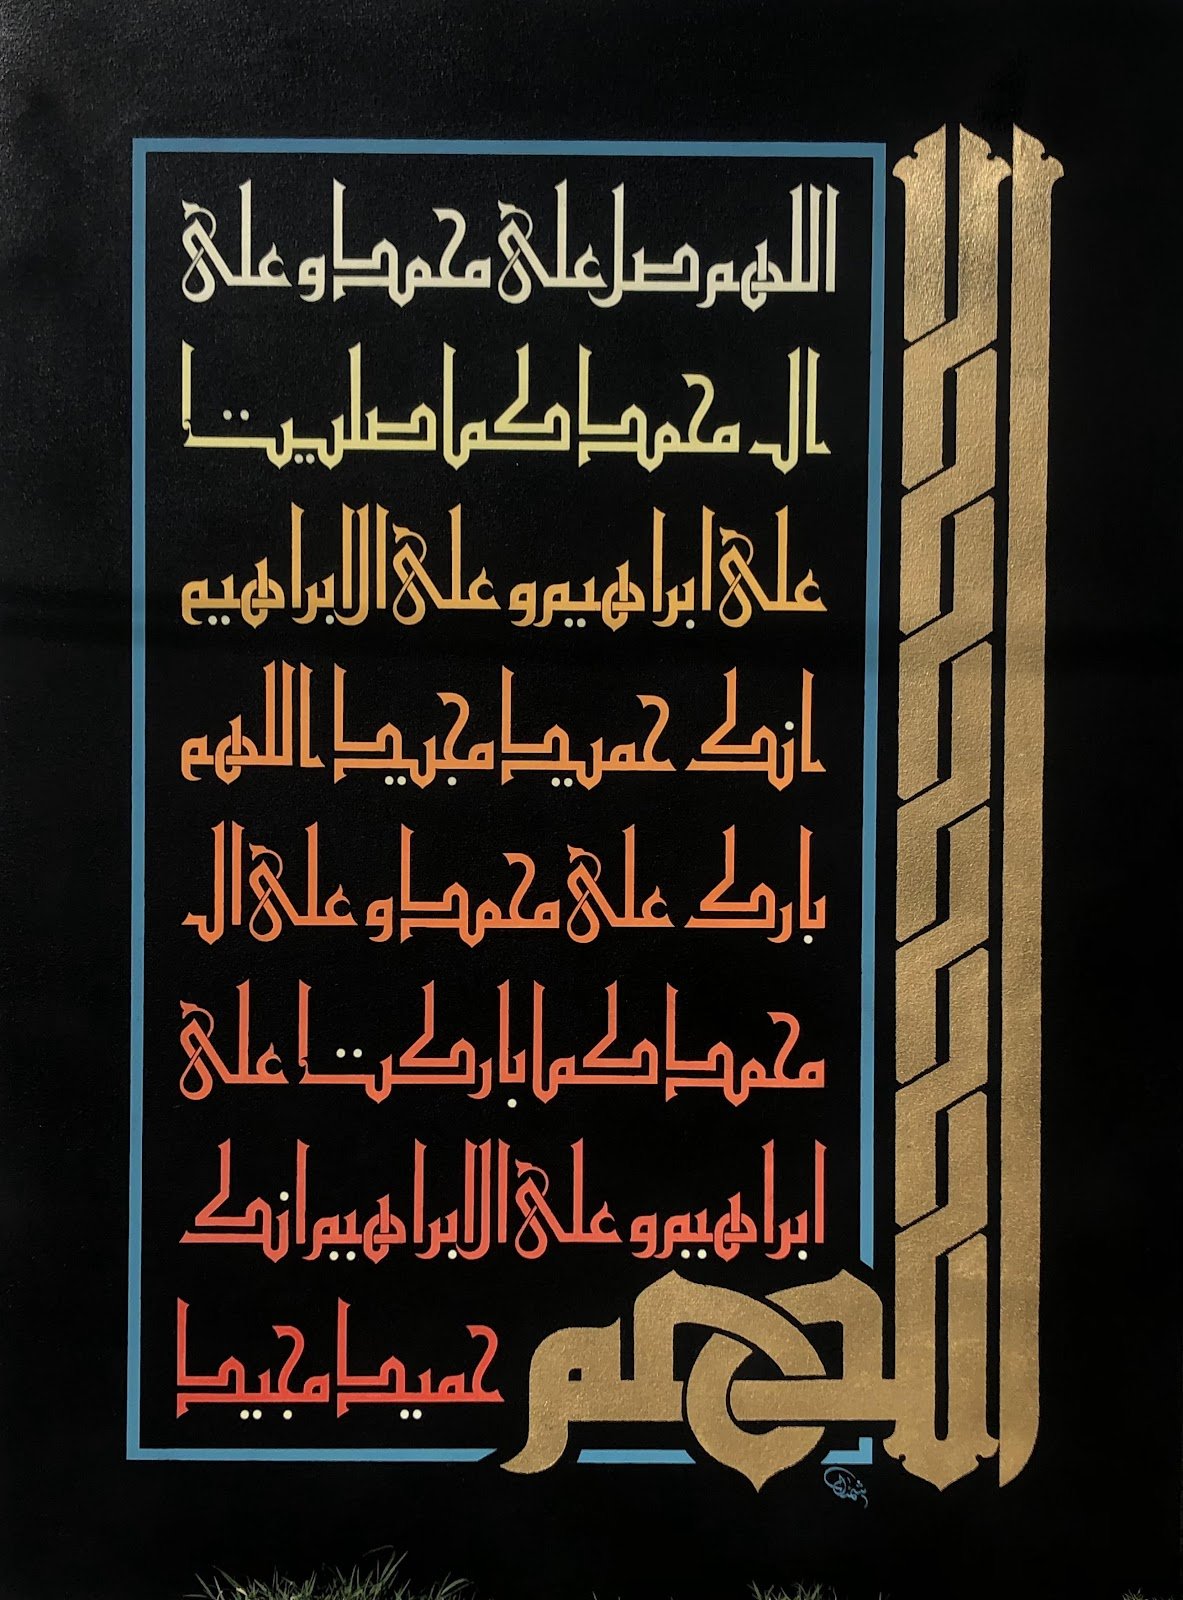 اللهم صل على محمد و على
ال محمد كما صليت
على ابراهيم و على ال ابراهيم
انك حميد مجيد اللهم
بارك على محمد و على ال
محمد كما باركت على
ابراهيم و على ال ابراهيم انك
حميد مجيد
اللهم